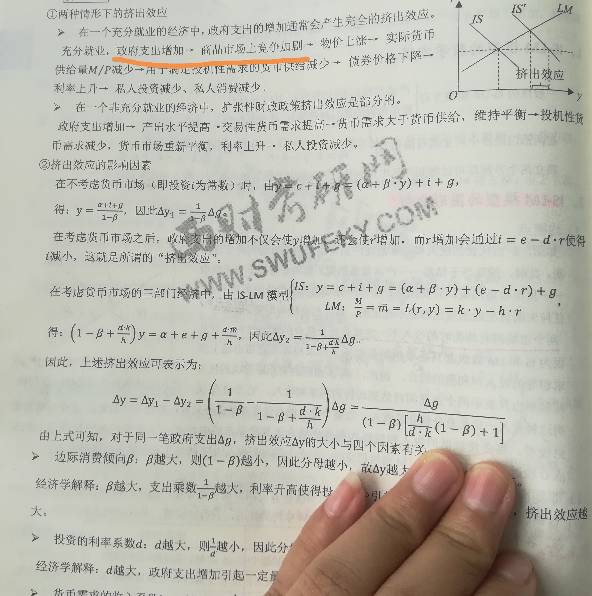 ①两种情形下的挤出效应
➢ 在一个充分就业的经济中，政府支出的增加通常会产生完全的挤出效应。
充分就业，政府支出增加→ 商品市场上竞争加剧→ 物价上涨→ 实际货币
供给量M/P减少→用于满足投机性需求的货币供给减少→ 债券价格下降→
利率上升→ 私人投资减少、私人消费减少。
➢ 在一个非充分就业的经济中，扩张性财政政策挤出效应是部分的。
政府支出增加→ 产出水平提高→交易性货币需求提高→货币需求大于货币供给，维持平衡→投机性货
币需求减少，货币市场重新平衡，利率上升→ 私人投资减少。
IS IS' LM
挤出效应
O y
②挤出效应的影响因素
在不考虑货币市场（即投资i为常数）时，由y = c + i + g = (α + β · y) + i + g，
得：y = (α+i+g)/(1−β)，因此Δy₁ = 1/(1−β) Δg。
在考虑货币市场之后，政府支出的增加不仅会使y增加，还会使r增加，而r增加会通过i = e − d · r使得
i减小，这就是所谓的“挤出效应”。
在考虑货币市场的三部门经济中，由 IS-LM 模型{IS：y = c + i + g = (α + β · y) + (e − d · r) + g
LM：M/P = m = L(r, y) = k · y − h · r，
得：(1 − β + d·k/h) y = α + e + g + d·m/h，因此Δy₂ = 1/(1−β+d·k/h) Δg。
因此，上述挤出效应可表示为：
Δy = Δy₁ − Δy₂ = (1/(1 − β) − 1/(1 − β + d·k/h)) Δg = Δg/((1 − β)[h/(d·k) (1 − β) + 1])
由上式可知，对于同一笔政府支出Δg，挤出效应Δy的大小与四个因素有关
➢ 边际消费倾向β：β越大，则(1 − β)越小，因此分母越小，故Δy越大
经济学解释：β越大，支出乘数1/(1−β)越大，利率升高使得投
，挤出效应越
大。
➢ 投资的利率系数d：d越大，则1/d越小，因此分
经济学解释：d越大，政府支出增加引起一定量
西财考研网
WWW.SWUFEKY.COM